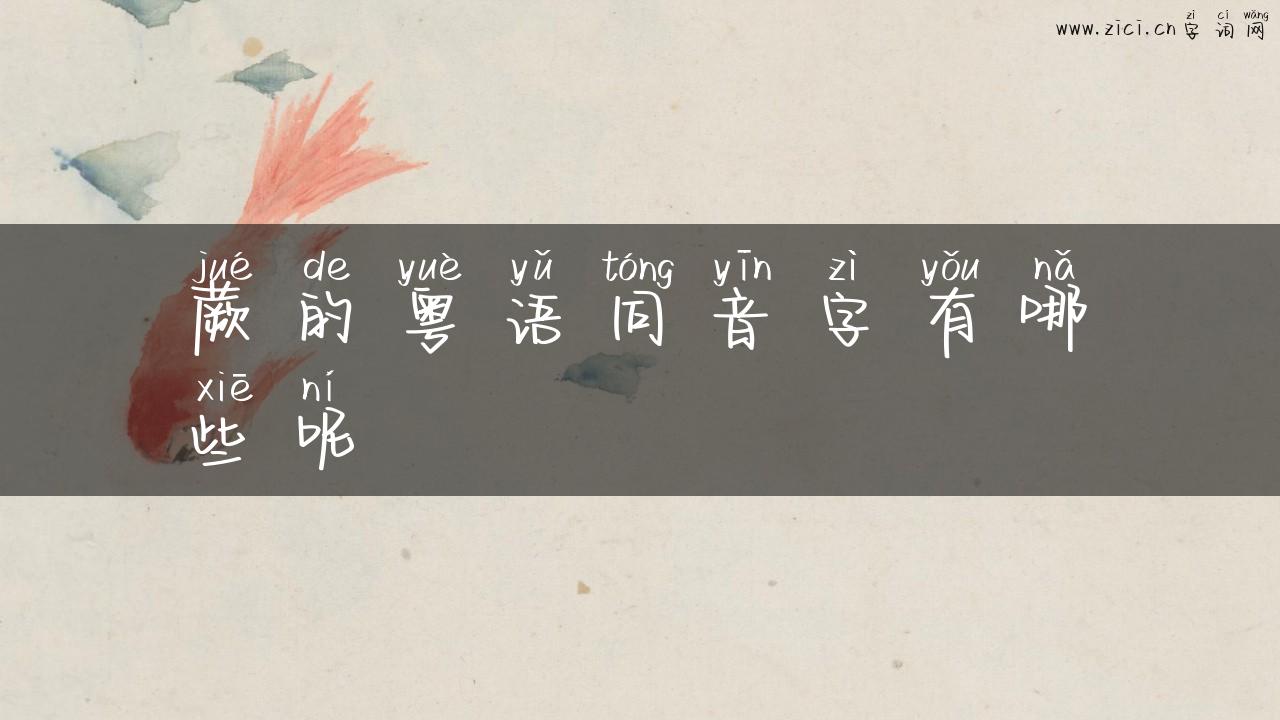 zì cí wǎng
www.zici.cn 字 词 网
jué de yuè yǔ tóng yīn zì yǒu nǎ
蕨 的 粤 语 同 音 字 有 哪
xiē ní
些 呢